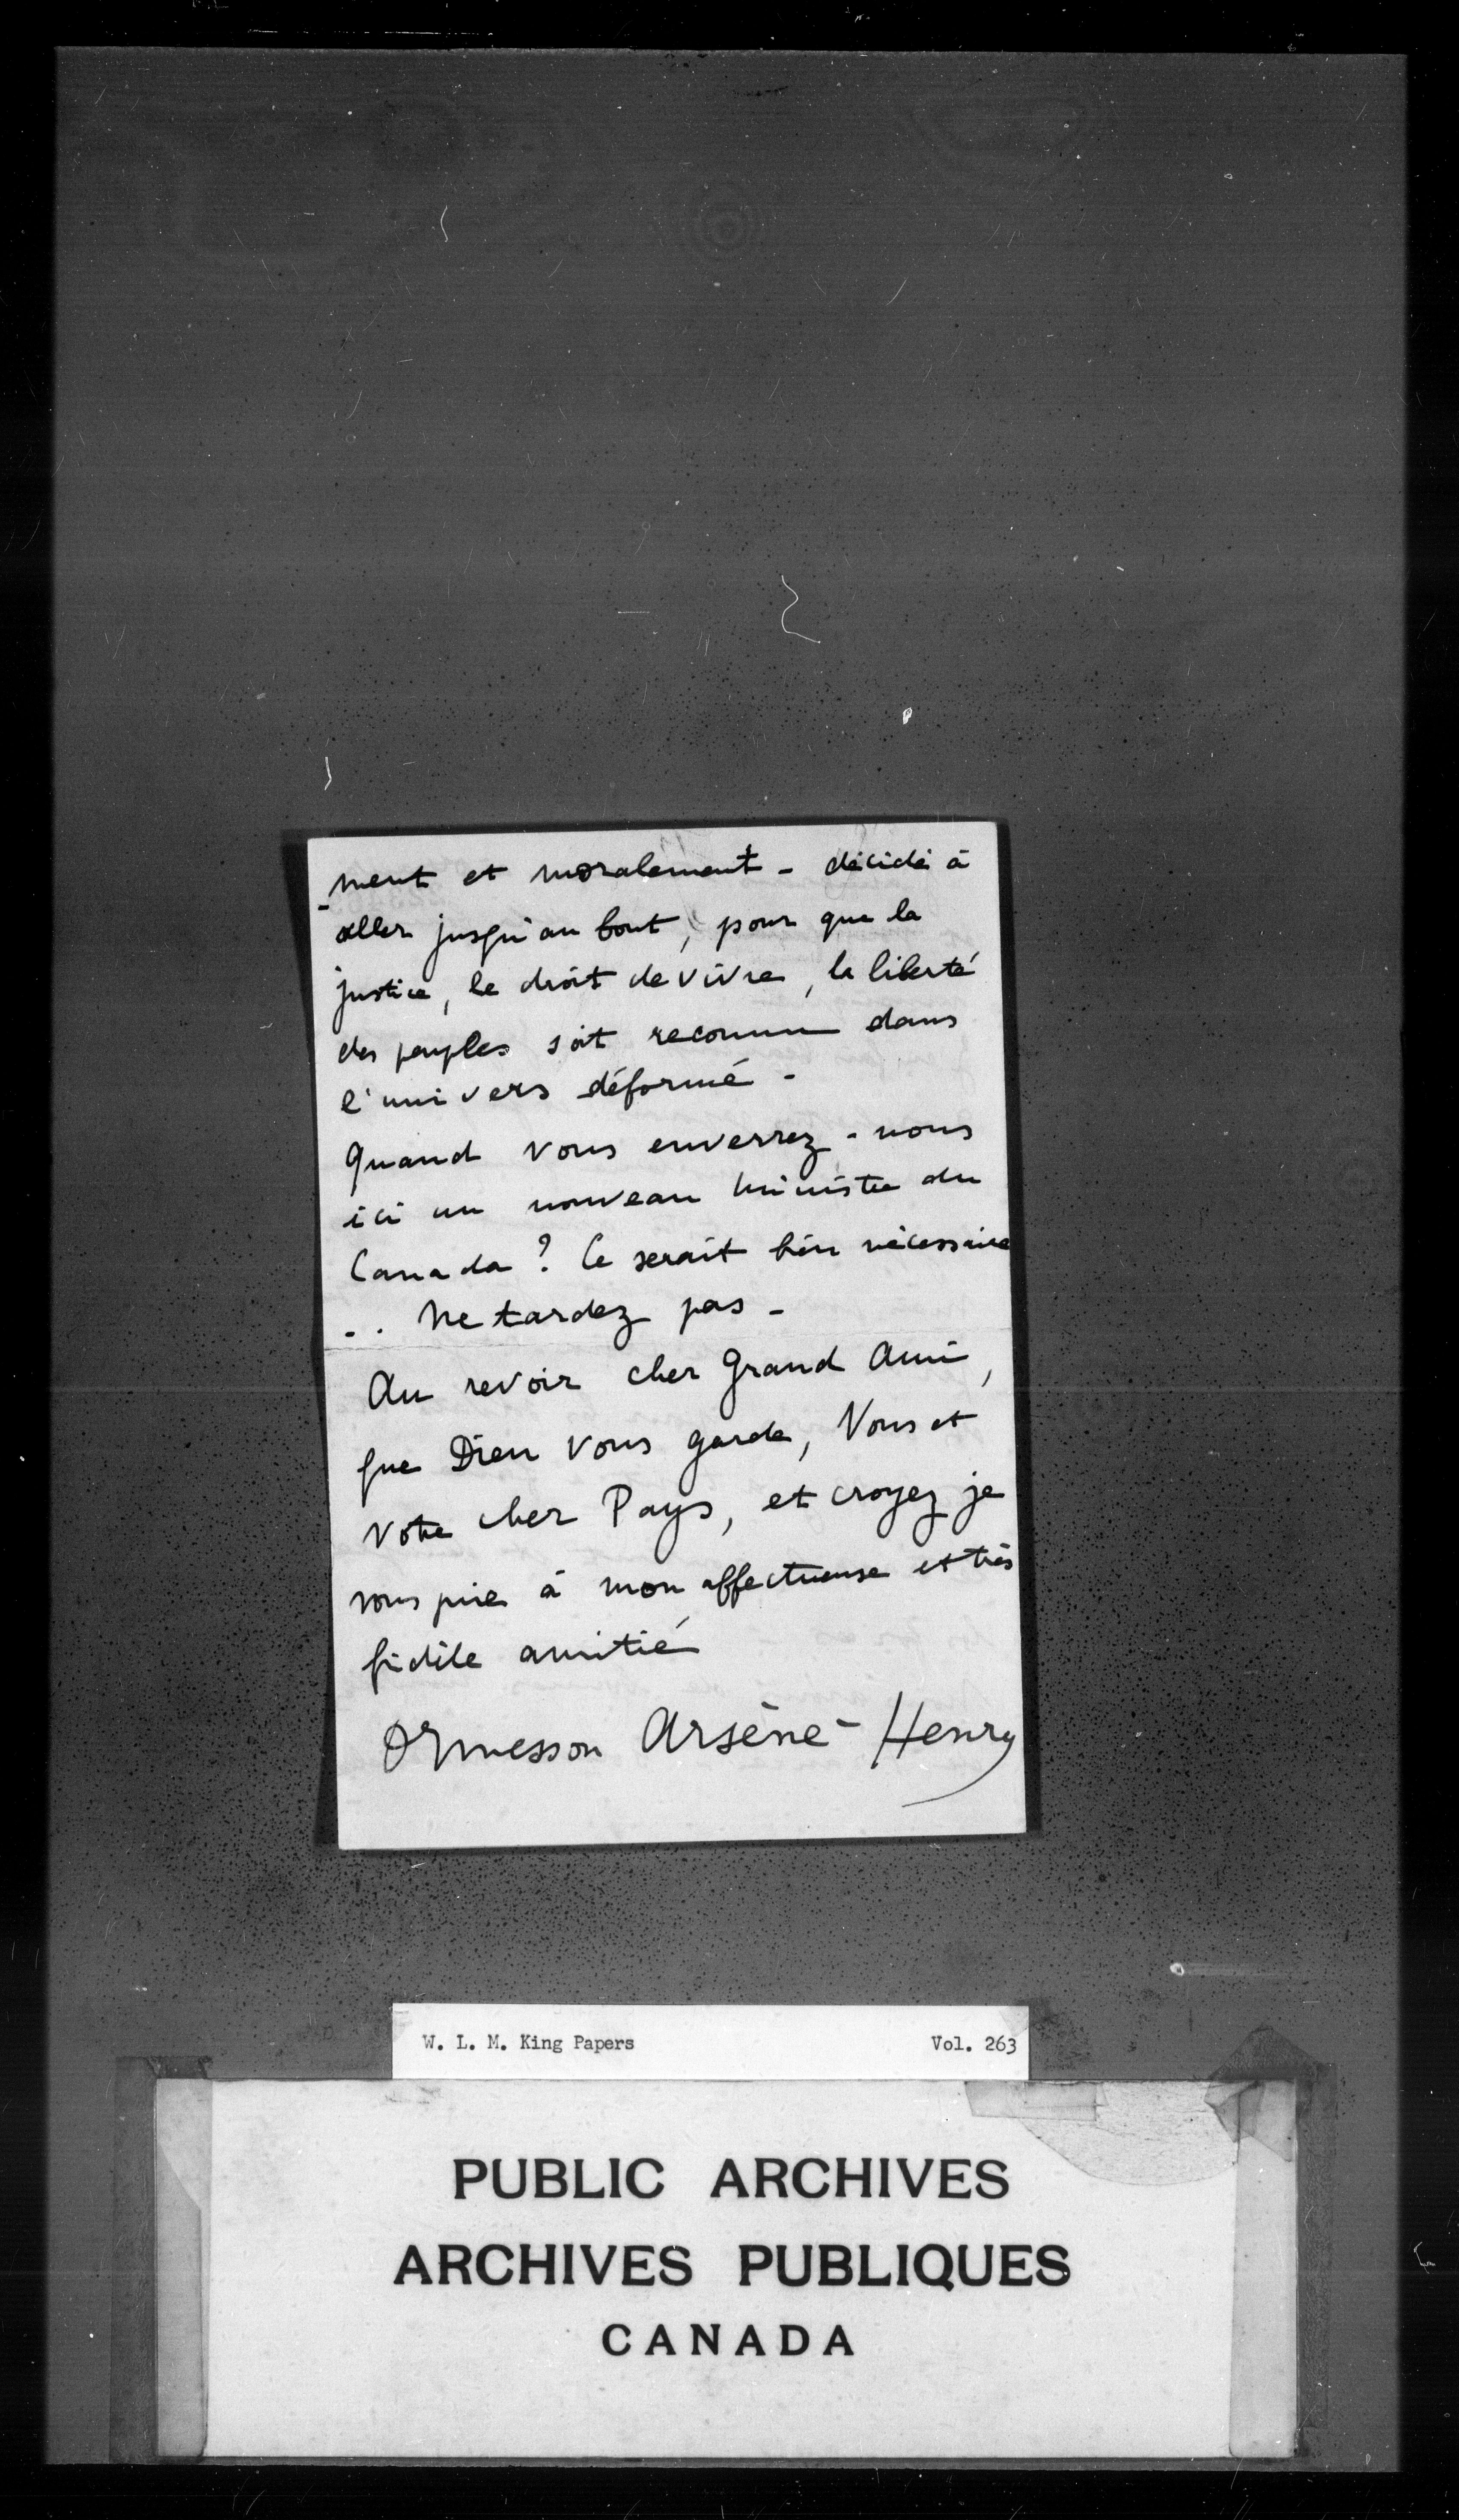 -ment et moralement - décidé à
aller jusqu'au bout, pour que la
justice, le droit de vivre, la liberté
des peuples soit reconnu dans
l'univers déformé -
Quand vous enverrez-nous
ici un nouveau ministre du
Canada ? Ce serait bien nécessaire
.. Ne tardez pas -
Au revoir cher Grand Ami,
que Dieu vous garde, Vous et
votre cher Pays, et croyez je
vous prie à mon affectueuse et très
fidèle amitié
Ormesson Arsène-Henry
W. L. M. King Papers Vol. 263
PUBLIC ARCHIVES
ARCHIVES PUBLIQUES
CANADA